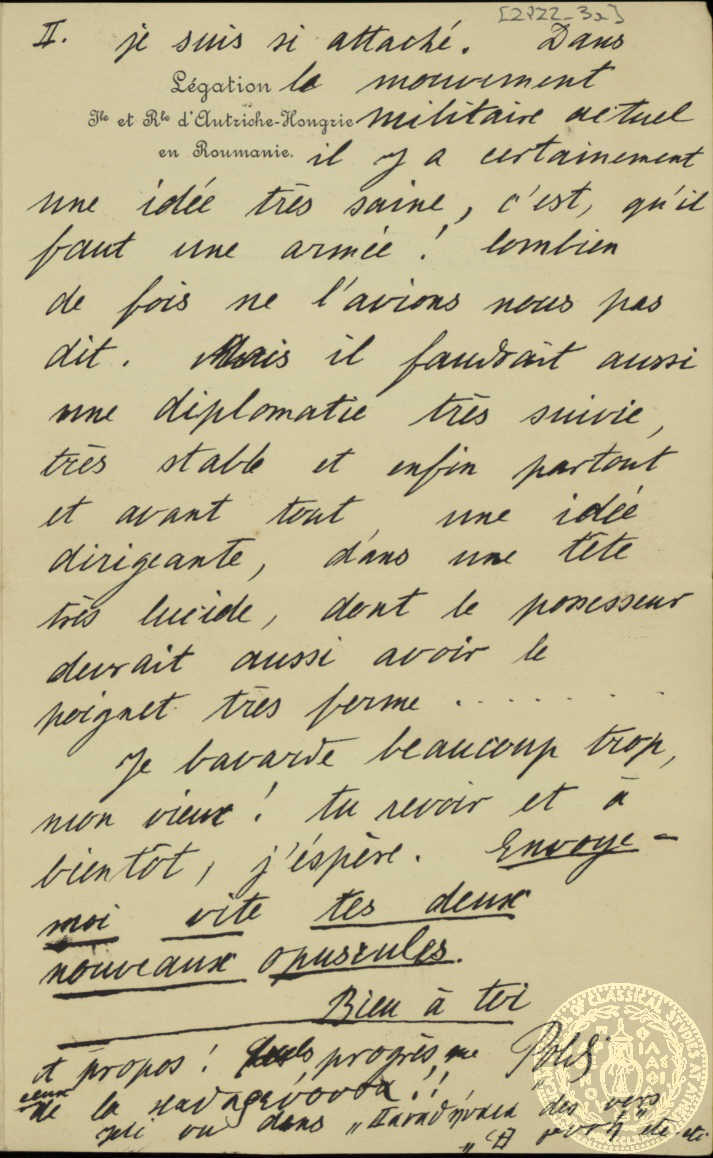 [2722-3a]
II. je suis si attaché. Dans
Légation le mouvement
Ile et Rle d'Autriche-Hongrie militaire actuel
en Roumanie. il y a certainement
une idée très saine, c'est, qu'il
faut une armée! Combien
de fois ne l'avions nous pas
dit. Mais il faudrait aussi
une diplomatie très suivie,
très stable et enfin partout
et avant tout, une idée
dirigeante, dans une tête
très lucide, dont le possesseur
devrait aussi avoir le
poignet très ferme . . . . . . .
Je bavarde beaucoup trop,
mon vieux! Au revoir et à
bientôt, j'éspère. Envoye-
moi vite tes deux
nouveaux opuscules.
Bien à toi
A propos! quels progrès, que
ceux
de la καθαρεύουσα!!
J'ai vu dans „Παναθήναια des vers